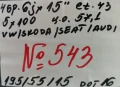 4бр. 6Jx15" et.43
5x100 ц.о. 57,1
VW/SKODA/SEAT/AUDI
№543
195/55/15 DOT 16